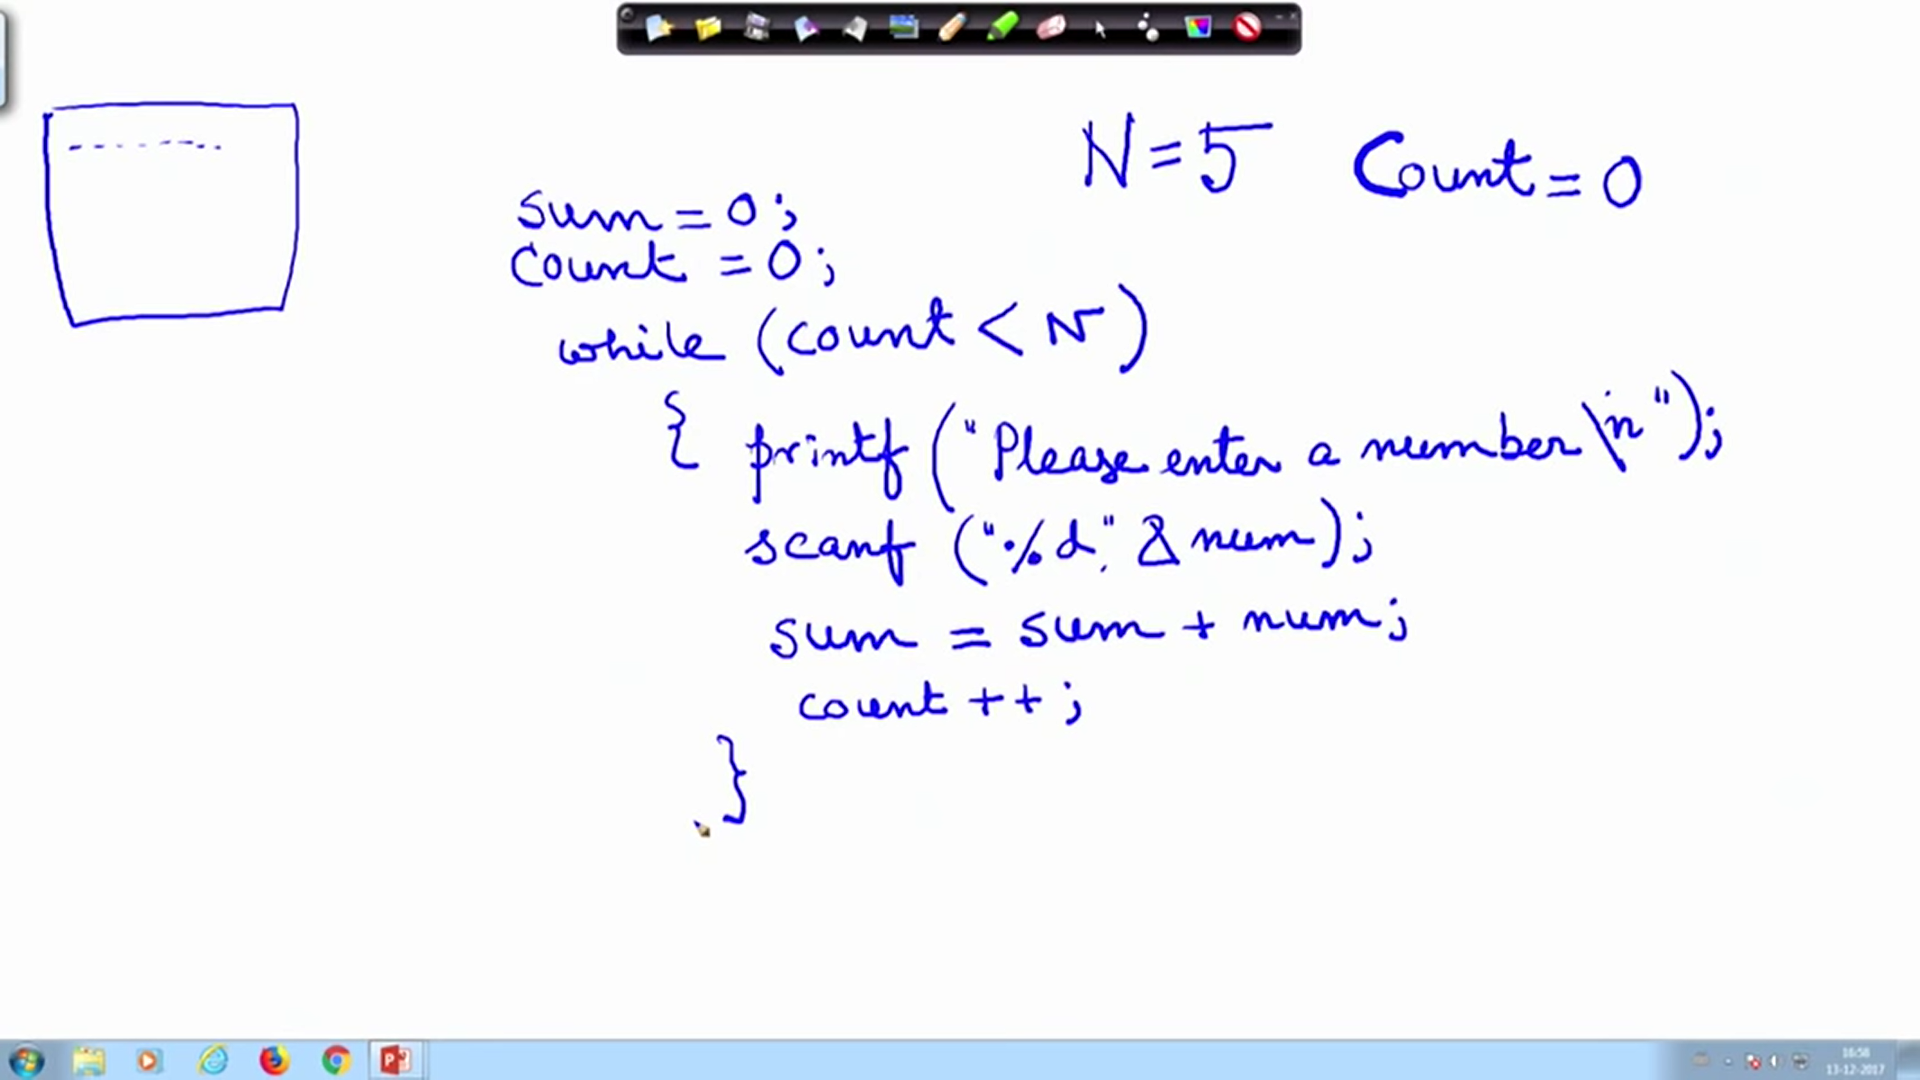 N = 5 Count = 0
sum = 0;
Count = 0;
while (count < N)
{ printf ("Please enter a number \n");
scanf ("%d," &num);
sum = sum + num;
count ++;
}
16:58
13-12-2017